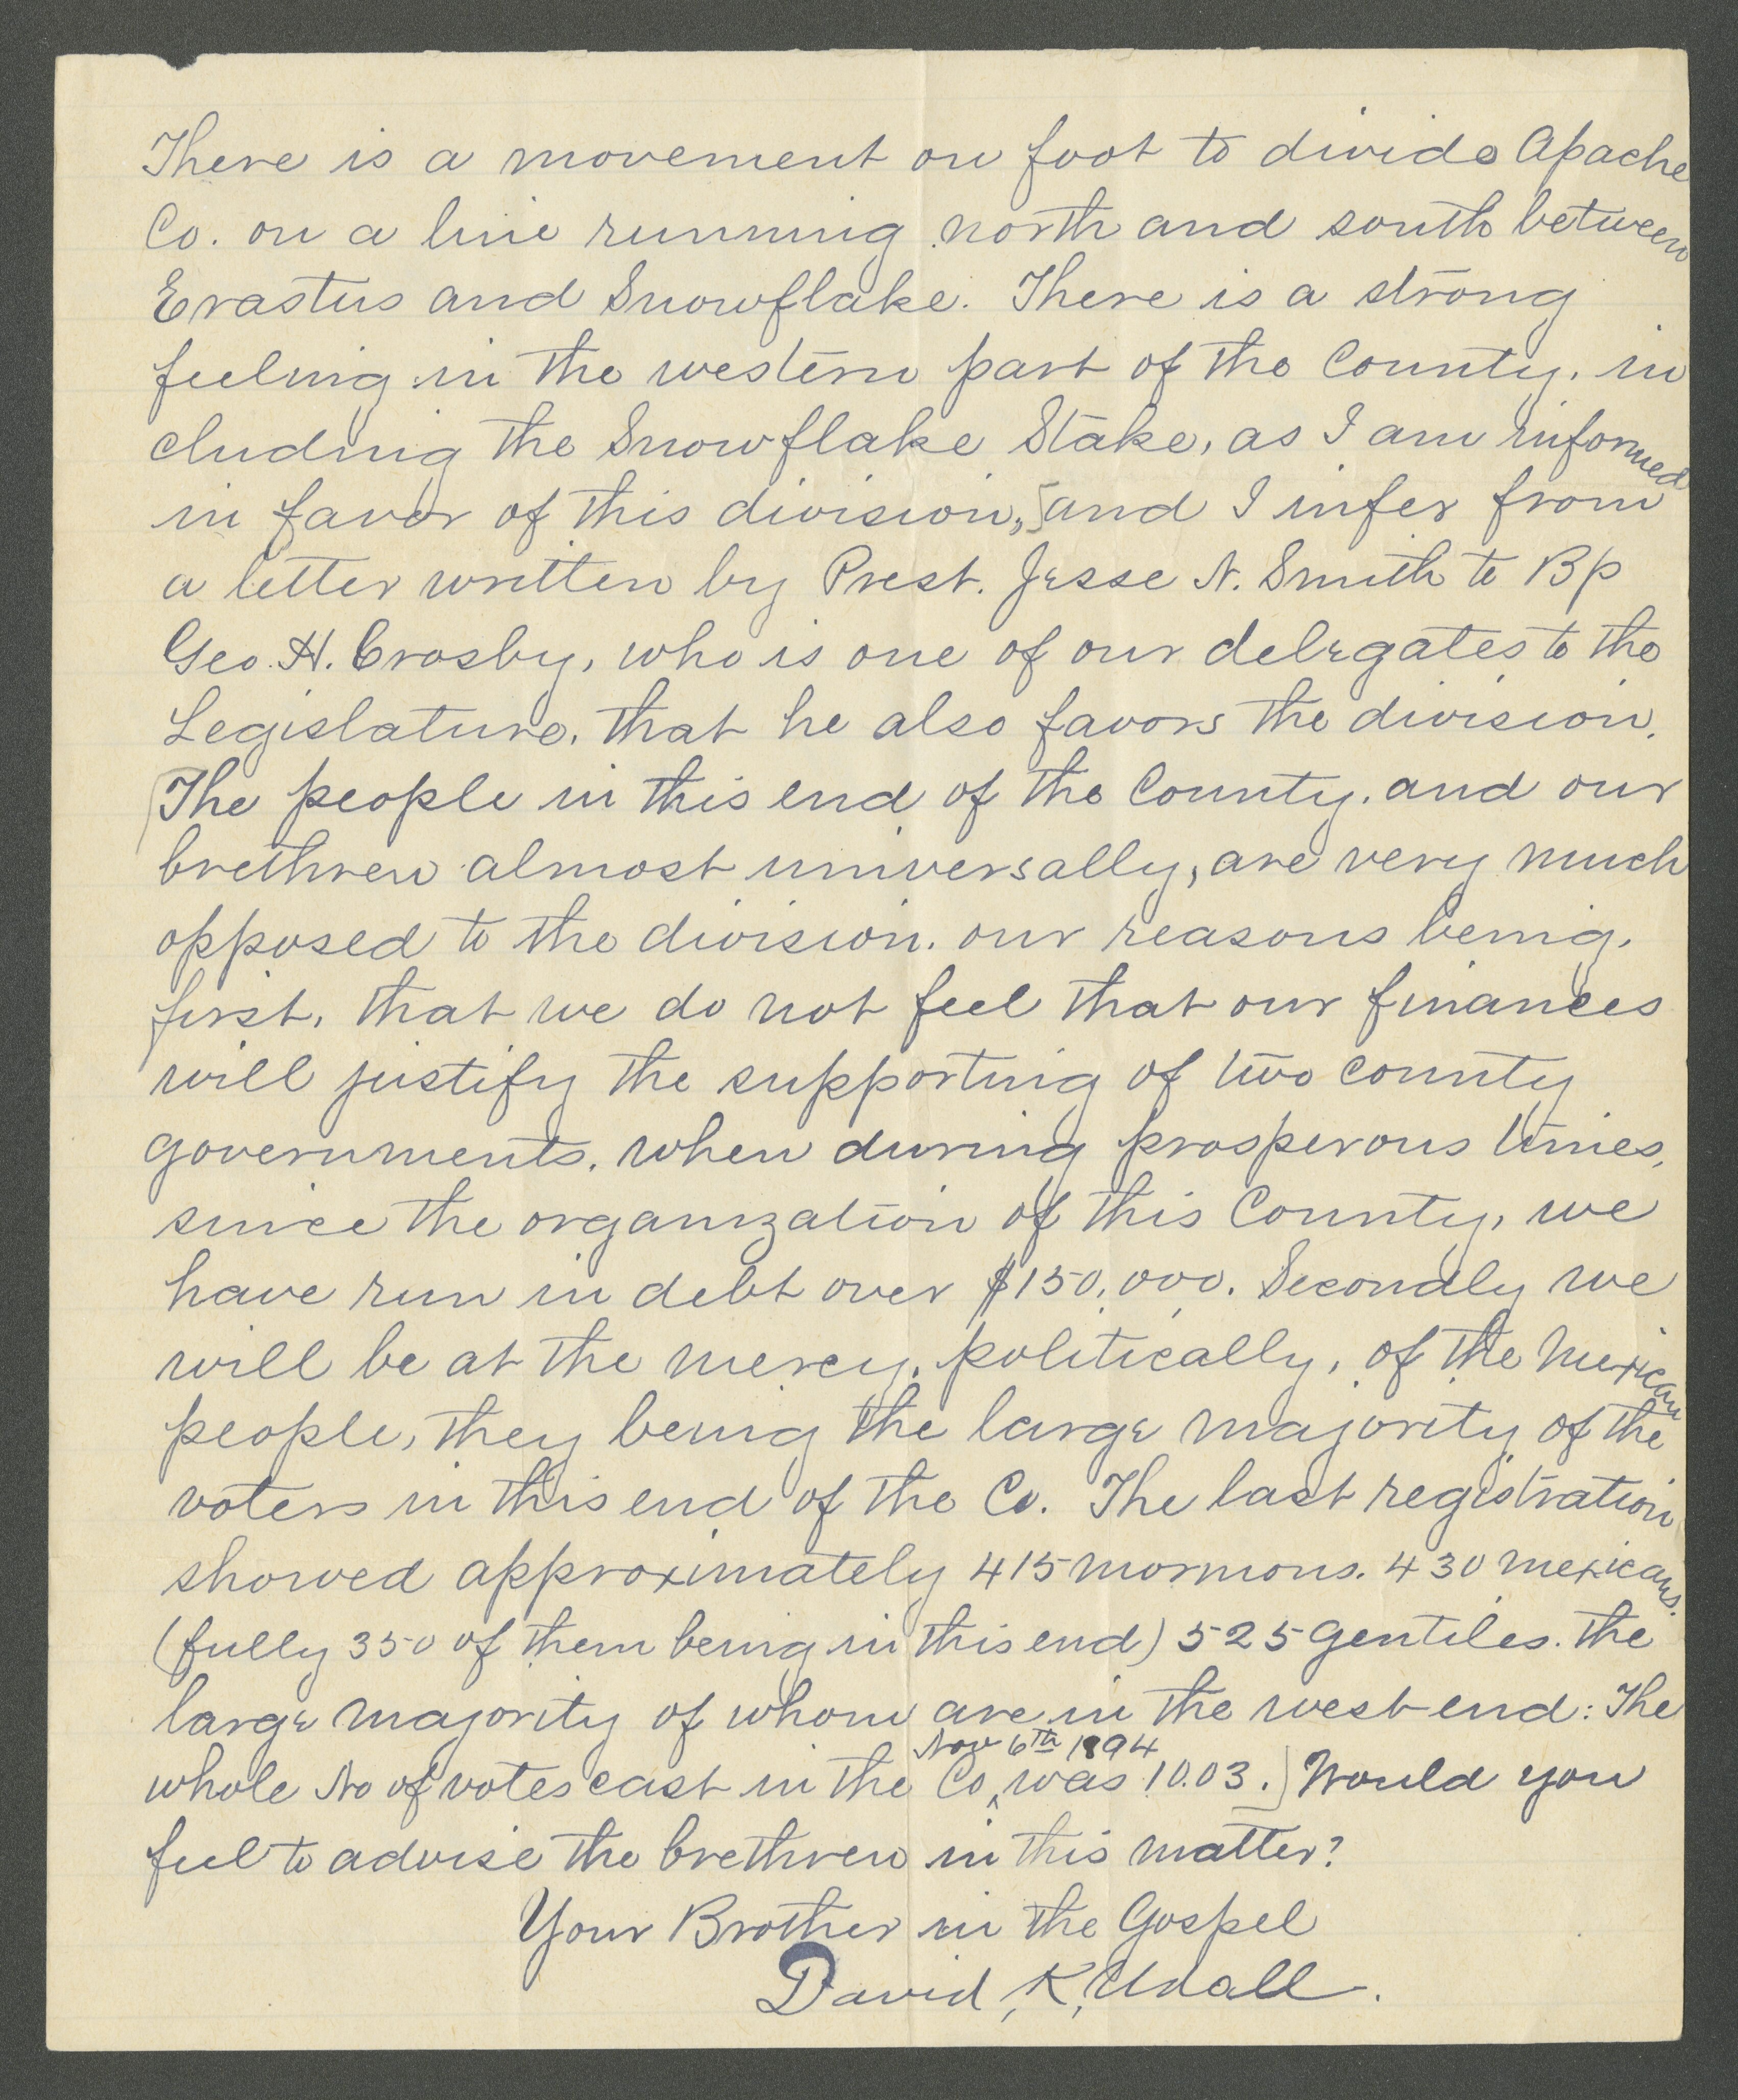 There is a movement on foot to divide Apache
Co. on a line running north and south between
Erastus and Snowflake. There is a strong
feeling in the western part of the County, in
cluding the Snowflake Stake, as I am informed
in favor of this division, [and I infer from
a letter written by Prest. Jesse N. Smith to Bp
Geo. H. Crosby, who is one of our delegates to the
Legislature, that he also favors the division.
[The people in this end of the County, and our
brethren almost universally, are very much
opposed to the division. our reasons being,
first, that we do not feel that our finances
will justify the supporting of two county
governments, when during prosperous times,
since the organization of this County, we
have run in debt over $150,000. Secondly we
will be at the mercy, politically, of the Mexican
people, they being the large majority of the
voters in this end of the Co. The last registration
showed approximately 415 mormons. 430 mexicans.
(fully 350 of them being in this end) 525 gentiles. the
large majority of whom are in the west end: The
Nov 6th 1894
whole No of votes cast in the Co ^ was 10.03.] Would you
feel to advise the brethren in this matter?
Your Brother in the Gospel
David K. Udall.